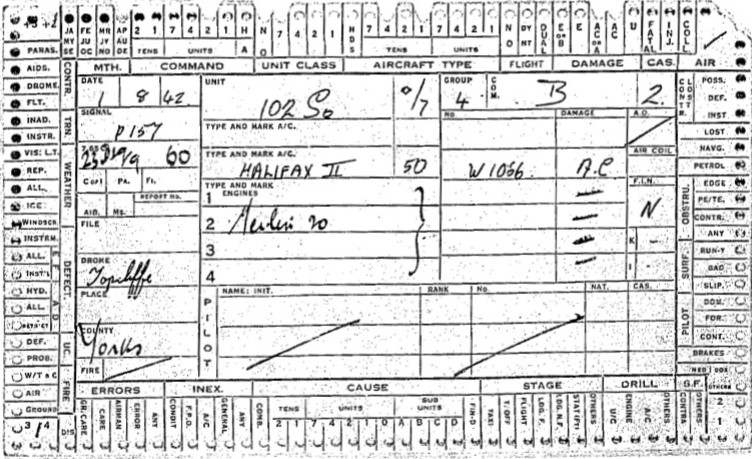 JA FE MR AP 2 1 7 4 2 1 H N 7 4 2 1 H 7 4 2 1 7 4 2 1 N DY DUAL E E AC AC U FAT INJ. COLL.
MY JU JY AU A O D O NT OR B OR A AL
SE OC NO DE TENS UNITS S TENS UNITS
PARAS. CONTR. MTH. COMMAND UNIT CLASS AIRCRAFT TYPE FLIGHT DAMAGE CAS. AIR
AIDS. DATE UNIT GROUP COM. CONTR. CLOST POSS.
DROME 1 8 42 102 Sq 0/7 4 B 2. DEF.
FLT. SIGNAL INST
INAD. TRN. P157 TYPE AND MARK A/C. NO. DAMAGE A.D. LOST
INSTR. NAVG.
VIS: L.T. WEATHER 60 HALIFAX II 50 W1066. A.C AIR COLL PETROL
REP. Copi PA. Fi. TYPE AND MARK F.I.N. OBSTRU. EDGE
ALL. REPORT No. ENGINES PE/TE.
ICE AID. Ms. 1 N CONTR.
WINDSCR. FILE 2 Merlin 20 ANY
INSTRM. 3 K - SURF. RUN-Y
ALL. DEFECT. DROME 4 I - BAD
INST'L Topcliffe SLIP.
HYD. PLACE NAME: INIT. RANK No. NAT. CAS. PILOT DOM.
ALL. PILOT FOR.
COUNTY CONT.
DEF. UC. Yorks BRAKES
PROB. FIRE
W/T & C FIRE ERRORS INEX. CAUSE STAGE DRILL S.F. OTHERS
AIR GR. CARE CARE AIRMAN ERROR ANY CONDIT F.P.O. A/C GENERAL ANY COMB. TENS UNITS SUB UNITS FIN-D TAXI T. OFF FLIGHT LDG. F. LDG. N.F. OTHERS U/C ENGINE A/C OTHERS CONTRA OTHERS 2
GROUND 2 1 7 4 2 1 A B C D 1
3/4 DIS